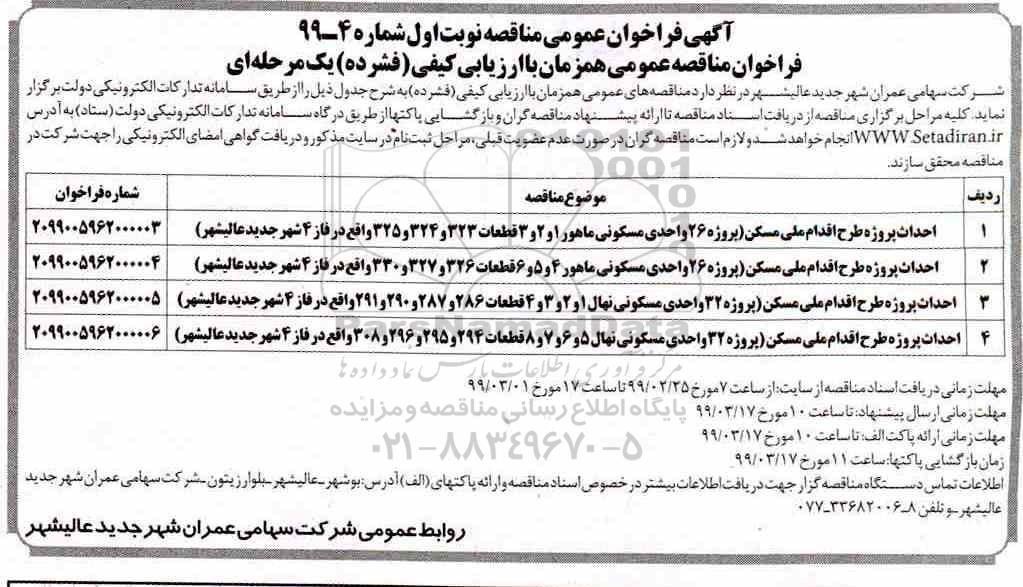 آگهی فراخوان عمومی مناقصه نوبت اول شماره ۴-۹۹
فراخوان مناقصه عمومی همزمان با ارزیابی کیفی (فشرده) یک مرحله‌ای
شرکت سهامی عمران شهر جدید عالیشهر در نظر دارد مناقصه های عمومی همزمان با ارزیابی کیفی (فشرده) به شرح جدول ذیل را از طریق سامانه تدارکات الکترونیکی دولت برگزار
نماید. کلیه مراحل برگزاری مناقصه از دریافت اسناد مناقصه تا ارائه پیشنهاد مناقصه گران و بازگشایی پاکتها از طریق درگاه سامانه تدارکات الکترونیکی دولت (ستاد) به آدرس
WWW.Setadiran.ir انجام خواهد شد و لازم است مناقصه گران در صورت عدم عضویت قبلی، مراحل ثبت نام در سایت مذکور و دریافت گواهی امضای الکترونیکی را جهت شرکت در
مناقصه محقق سازند.
ردیف موضوع مناقصه شماره فراخوان
۱ احداث پروژه طرح اقدام ملی مسکن (پروژه ۲۶ واحدی مسکونی ماهور ۱ و ۲ و ۳ قطعات ۳۲۳ و ۳۲۴ و ۳۲۵ واقع در فاز ۴ شهر جدید عالیشهر) ۲۰۹۹۰۰۵۹۶۲۰۰۰۰۰۳
۲ احداث پروژه طرح اقدام ملی مسکن (پروژه ۲۶ واحدی مسکونی ماهور ۴ و ۵ و ۶ قطعات ۳۲۶ و ۳۲۷ و ۳۳۰ واقع در فاز ۴ شهر جدید عالیشهر) ۲۰۹۹۰۰۵۹۶۲۰۰۰۰۰۴
۳ احداث پروژه طرح اقدام ملی مسکن (پروژه ۳۲ واحدی مسکونی نهال ۱ و ۲ و ۳ و ۴ قطعات ۲۸۶ و ۲۸۷ و ۲۹۰ و ۲۹۱ واقع در فاز ۴ شهر جدید عالیشهر) ۲۰۹۹۰۰۵۹۶۲۰۰۰۰۰۵
۴ احداث پروژه طرح اقدام ملی مسکن (پروژه ۳۲ واحدی مسکونی نهال ۵ و ۶ و ۷ و ۸ قطعات ۲۹۴ و ۲۹۵ و ۲۹۶ و ۳۰۸ واقع در فاز ۴ شهر جدید عالیشهر) ۲۰۹۹۰۰۵۹۶۲۰۰۰۰۰۶
ParsNamadData
مرکز فرآوری اطلاعات پارس نماد داده ها
مهلت زمانی دریافت اسناد مناقصه از سایت: از ساعت ۷ مورخ ۹۹/۰۲/۲۵ تا ساعت ۱۷ مورخ ۹۹/۰۳/۰۱
مهلت زمانی ارسال پیشنهاد: تا ساعت ۱۰ مورخ ۹۹/۰۳/۱۷
پایگاه اطلاع رسانی مناقصه و مزایده
مهلت زمانی ارائه پاکت الف: تا ساعت ۱۰ مورخ ۹۹/۰۳/۱۷
۰۲۱-۸۸۳۴۹۶۷۰-۵
زمان بازگشایی پاکتها: ساعت ۱۱ مورخ ۹۹/۰۳/۱۷
اطلاعات تماس دستگاه مناقصه گزار جهت دریافت اطلاعات بیشتر در خصوص اسناد مناقصه و ارائه پاکتهای (الف) آدرس: بوشهر - عالیشهر - بلوار زیتون - شرکت سهامی عمران شهر جدید
عالیشهر - و تلفن ۸-۳۳۶۸۲۰۰۶-۰۷۷
روابط عمومی شرکت سهامی عمران شهر جدید عالیشهر